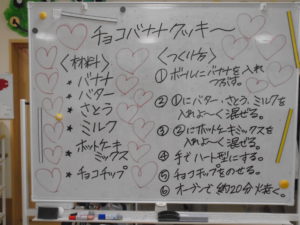 チョコバナナクッキー
〈材料〉
★ バナナ
★ バター
★ さとう
★ ミルク
★ ホットケーキ
ミックス
★ チョコチップ
〈つくり方〉
① ボールにバナナを入れ
つぶす。
② ①にバター・さとう、ミルクを
入れよ〜く混ぜる。
③ ②にホットケーキミックスを
入れよ〜く混ぜる。
④ 手でハート型にする。
⑤ チョコチップをのせる。
⑥ オーブンで約20分焼く。